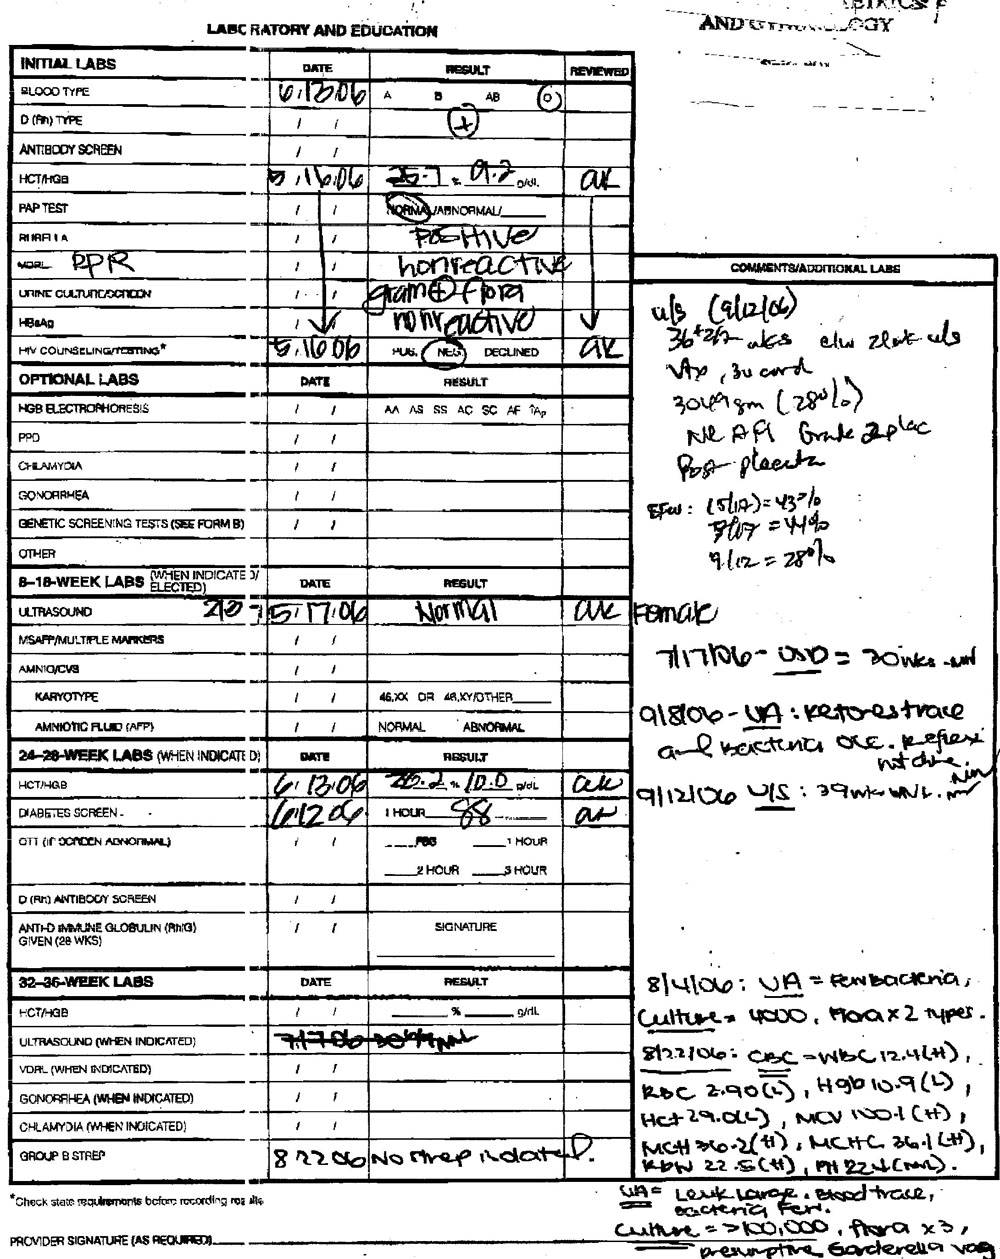 LABORATORY AND EDUCATION
AND GYNECOLOGY
INITIAL LABS DATE RESULT REVIEWED
BLOOD TYPE 6/13/06 A B AB O
D (Rh) TYPE / / +
ANTIBODY SCREEN / /
HCT/HGB 5/16/06 % 9.2 g/dL ak
PAP TEST / / NORMAL/ABNORMAL/
RUBELLA / / POSITIVE
VDRL RPR / / nonreactive
URINE CULTURE/SCREEN / / gram + flora
HBsAg / / nonreactive
HIV COUNSELING/TESTING* 5/16/06 POS. NEG. DECLINED ak
OPTIONAL LABS DATE RESULT
HGB ELECTROPHORESIS / / AA AS SS AC SC AF TA2
PPD / /
CHLAMYDIA / /
GONORRHEA / /
GENETIC SCREENING TESTS (SEE FORM B) / /
OTHER
8–18-WEEK LABS (WHEN INDICATED/ELECTED) DATE RESULT
ULTRASOUND 5/17/06 Normal ak
MSAFP/MULTIPLE MARKERS / /
AMNIO/CVS / /
KARYOTYPE / / 46,XX OR 46,XY/OTHER
AMNIOTIC FLUID (AFP) / / NORMAL ABNORMAL
24–28-WEEK LABS (WHEN INDICATED) DATE RESULT
HCT/HGB 6/13/06 % 10.0 g/dL ak
DIABETES SCREEN 6/12/06 1 HOUR 88 ak
GTT (IF SCREEN ABNORMAL) / / FBS 1 HOUR
2 HOUR 3 HOUR
D (Rh) ANTIBODY SCREEN / /
ANTI-D IMMUNE GLOBULIN (RhIG) / / SIGNATURE
GIVEN (28 WKS)
32–36-WEEK LABS DATE RESULT
HCT/HGB / / % g/dL
ULTRASOUND (WHEN INDICATED)
VDRL (WHEN INDICATED) / /
GONORRHEA (WHEN INDICATED) / /
CHLAMYDIA (WHEN INDICATED) / /
GROUP B STREP 8 22 06 No strep isolated.
*Check state requirements before recording results
PROVIDER SIGNATURE (AS REQUIRED)
COMMENTS/ADDITIONAL LABS
u/s (9/12/06)
36+2/7 wks c/w u/s
Vtx, 3v cord
3049gm (28%)
Nl AFI Grade 2 plac
Post placenta
EFW: (5/17) = 43%
7/17 = 44%
9/12 = 28%
Female
7/17/06 - = 30wks
9/8/06 - UA: Ketones trace
and bacteria occ. Reflex
not done.
9/12/06 U/S: 39wk WNL.
8/4/06: UA = Few bacteria,
Culture = 4000, flora x 2 types.
8/22/06: CBC = WBC 12.4(H),
RBC 2.90(L), Hgb 10.9(L),
Hct 29.0(L), MCV 100.1(H),
MCH 36.2(H), MCHC 36.1(H),
RDW 22.5(H), Plt 224(NML).
UA = Leuk Large, Blood trace,
bacteria Few.
Culture = >100,000, flora x3,
presumptive Gardnerella vag